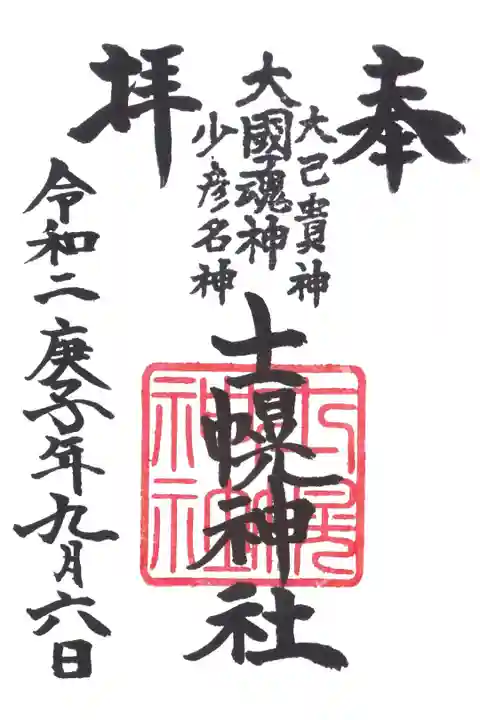 奉拝
大己貴神
大國魂神
少彦名神
士幌神社
令和二庚子年九月六日